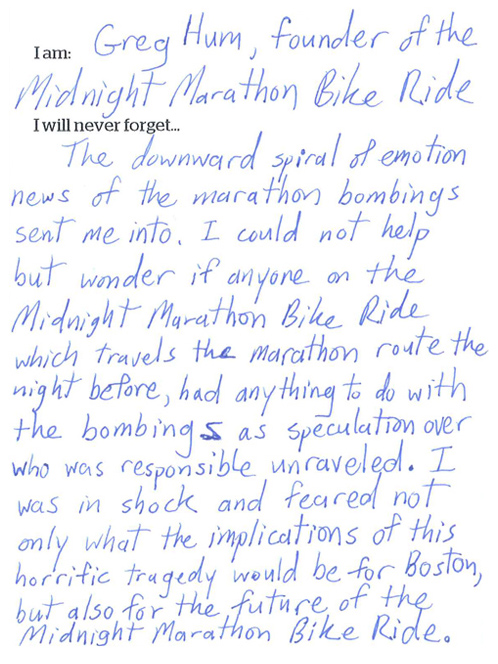 I am: Greg Hum, founder of the
Midnight Marathon Bike Ride
I will never forget...
The downward spiral of emotion
news of the marathon bombings
sent me into. I could not help
but wonder if anyone on the
Midnight Marathon Bike Ride
which travels the marathon route the
night before, had anything to do with
the bombings as speculation over
who was responsible unraveled. I
was in shock and feared not
only what the implications of this
horrific tragedy would be for Boston,
but also for the future of the
Midnight Marathon Bike Ride.